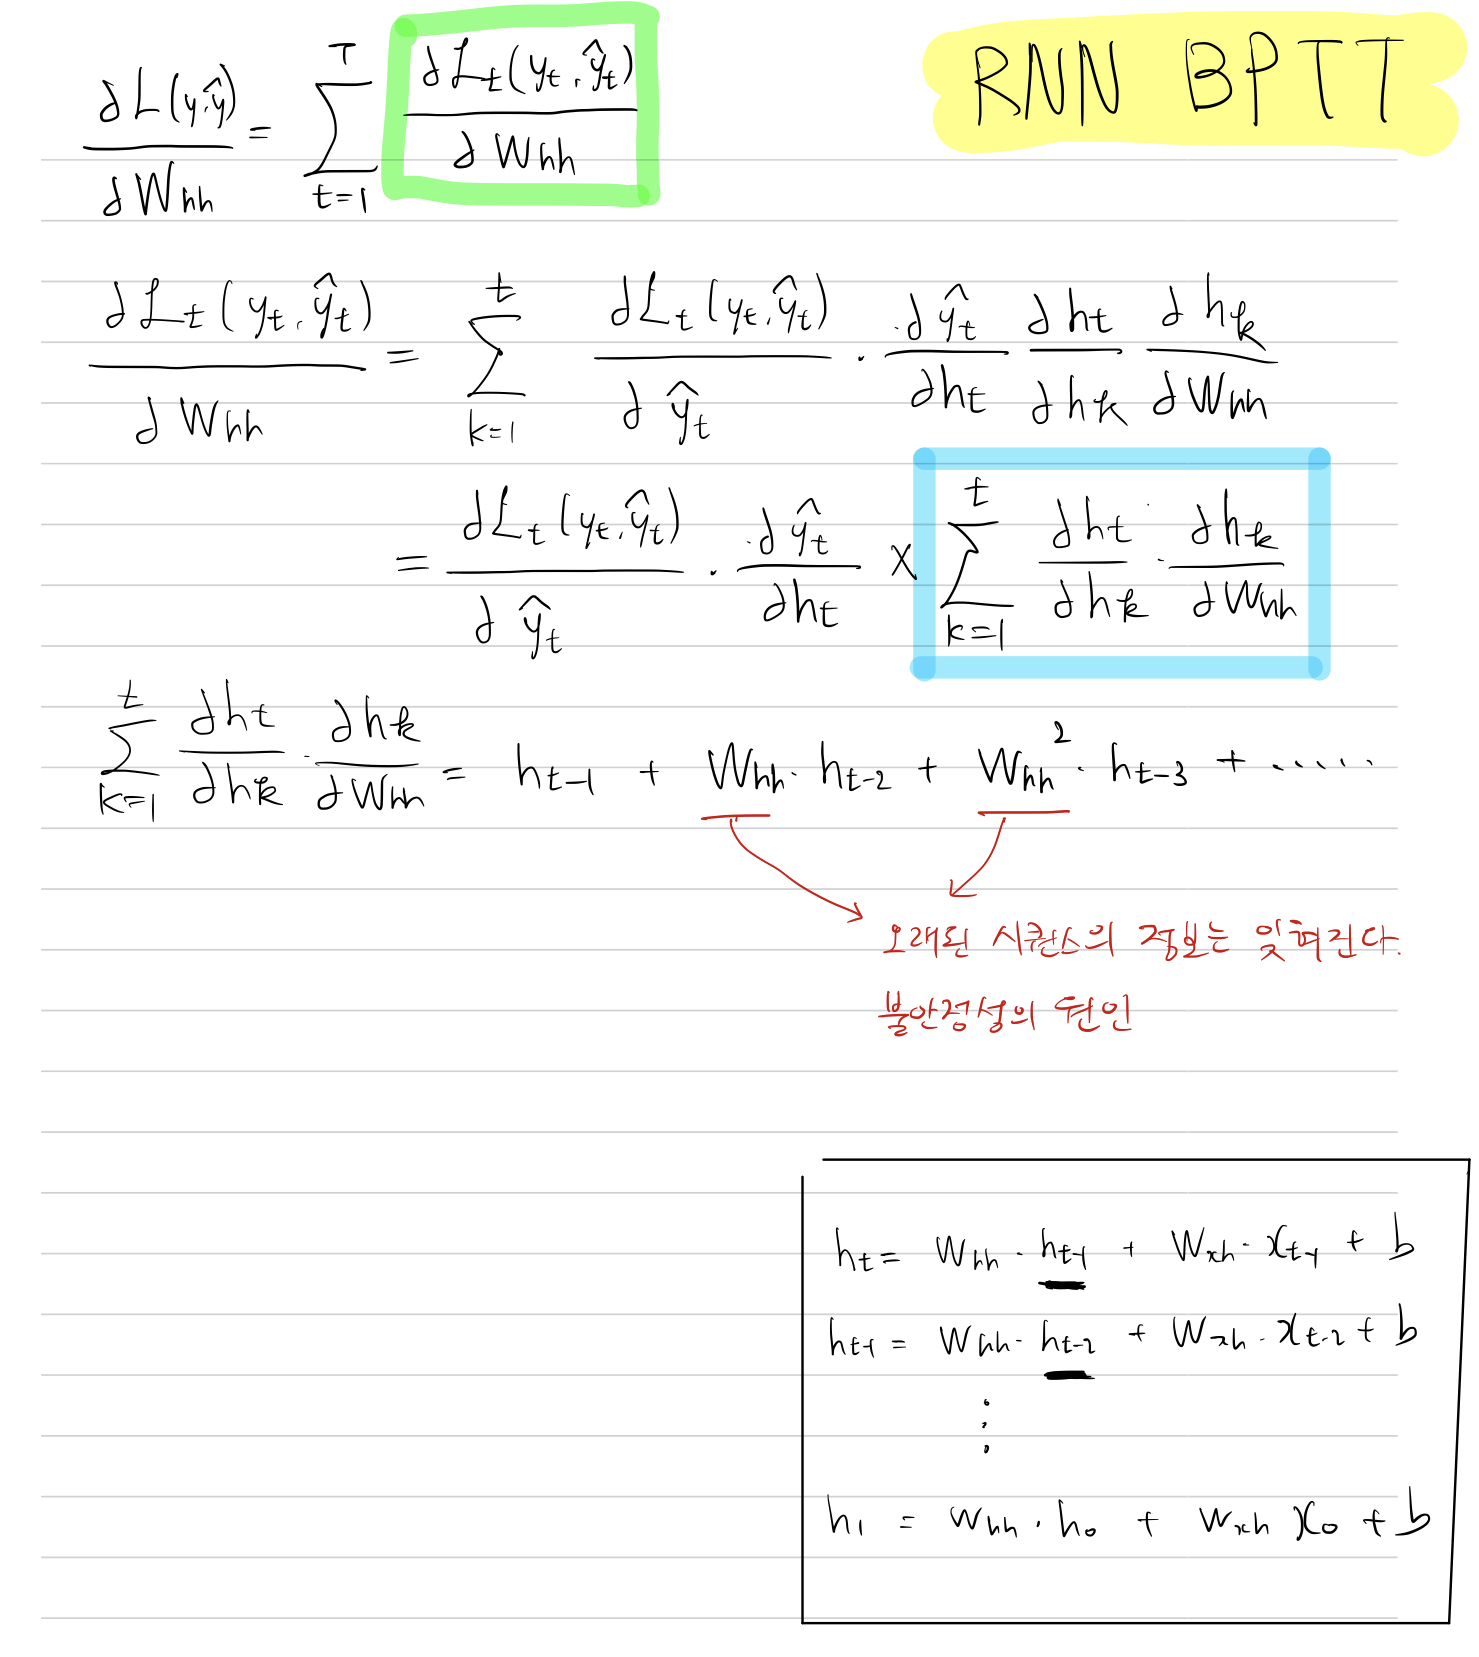 RNN BPTT
∂L(y,ŷ)/∂W_hh = Σ_{t=1}^{T} ∂ℒ_t(y_t,ŷ_t)/∂W_hh
∂ℒ_t(y_t,ŷ_t)/∂W_hh = Σ_{k=1}^{t} ∂ℒ_t(y_t,ŷ_t)/∂ŷ_t · ∂ŷ_t/∂h_t ∂h_t/∂h_k ∂h_k/∂W_hh
= ∂ℒ_t(y_t,ŷ_t)/∂ŷ_t · ∂ŷ_t/∂h_t × Σ_{k=1}^{t} ∂h_t/∂h_k · ∂h_k/∂W_hh
Σ_{k=1}^{t} ∂h_t/∂h_k · ∂h_k/∂W_hh = h_{t-1} + W_hh · h_{t-2} + W_hh² · h_{t-3} + ·····
오래된 시퀀스의 정보는 잊혀진다.
불안정성의 원인
h_t = W_hh · h_{t-1} + W_xh · x_{t-1} + b
h_{t-1} = W_hh · h_{t-2} + W_xh · x_{t-2} + b
⋮
h_1 = W_hh · h_0 + W_xh x_0 + b